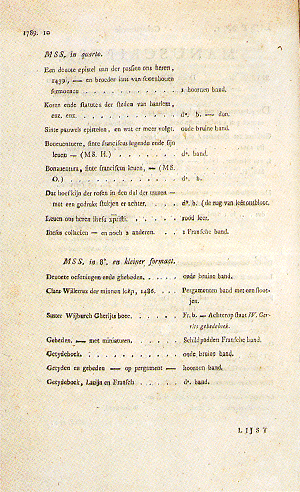 1789. 10
MSS, in quarto.
Een devote epistel van der passien ons heren,
1439, — en broeder ians van sconenhouen
sermoenen . . . . 1 hoornen band.
Koren ende statuten der steden van haarlem,
enz. enz. . . . . . . . dº. b. — dun.
Sinte pauwels epistelen, en wat er meer volgt. oude bruine band.
Bonuentuere, sinte franciscus legende ende sijn
leuen — (MS. H.) . . . . . dº. band.
Bonauentura, sinte franciscus leuen, — (MS.
O.) . . . . . . . . dº. b.
Dat boefkijn der rosen in den dal der tranen —
met een gedrukt stukjen er achter. . . . dº. b. (de rug van
Leuen ons heren ihesu xpristi. . . . . rood leer.
Ihesus collacien — en noch 2 anderen. . . 1 Fransche band.
MSS, in 8º. en kleiner formaat.
Devote oefeningen ende ghebeden. . . . oude bruine band.
Claes Willems der minnen loep, 1486. . . Pergamenten band met een sloot-
jen.
Suster Wijburch Gherijts boec. . . . . Fr. b. — Achterop staat IV. Ger-
rits gebedeboek.
Gebeden. — met miniaturen. . . . . Schildpadden Fransche band.
Getydeboek. . . . . . . . oude bruine band.
Getyden en gebeden — op pergament — hoornen band.
Getydeboek, Latijn en Fransch . . . . dº. band.
LIJST